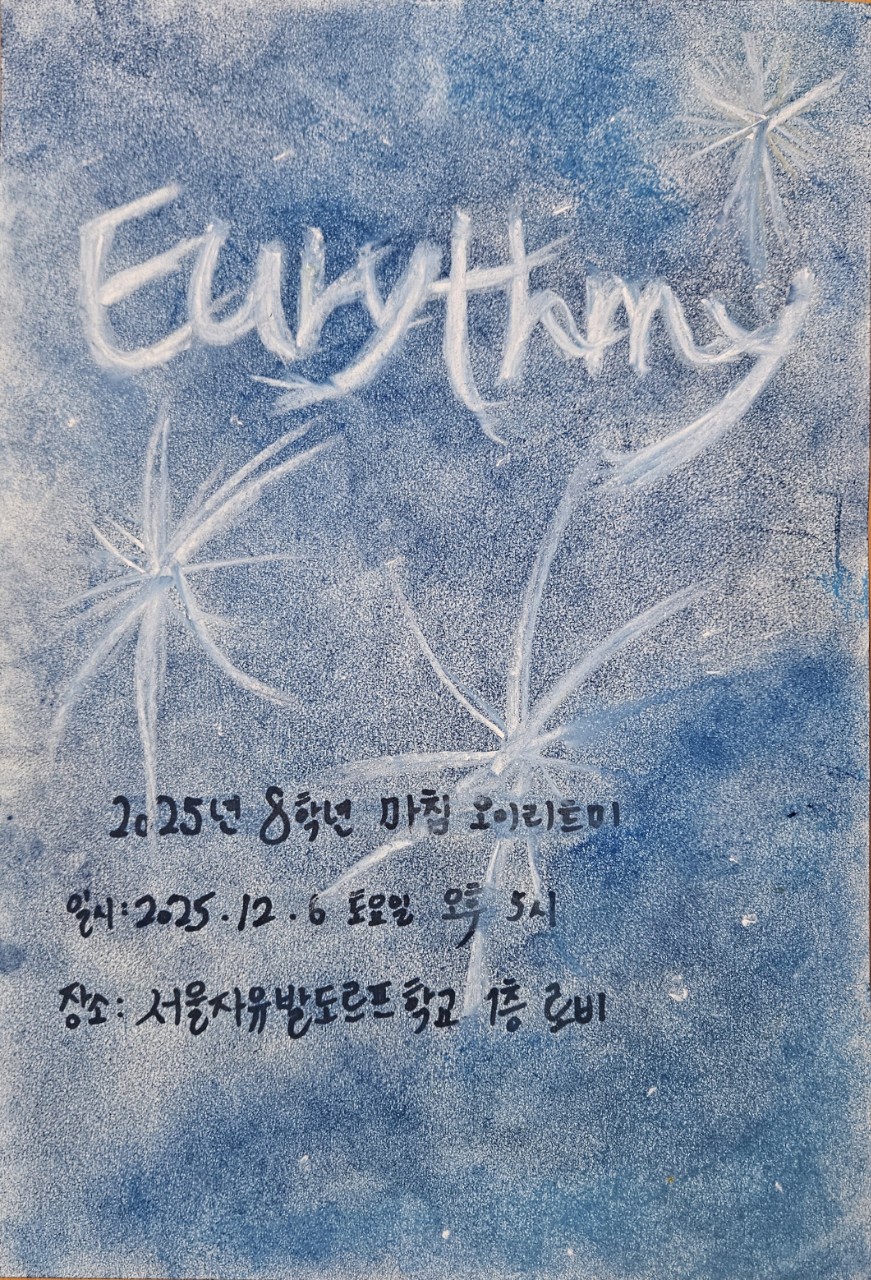 Eurythmy
2025년 8학년 마침 오이리트미
일시: 2025.12.6 토요일 오후 5시
장소: 서울자유발도르프학교 1층 로비